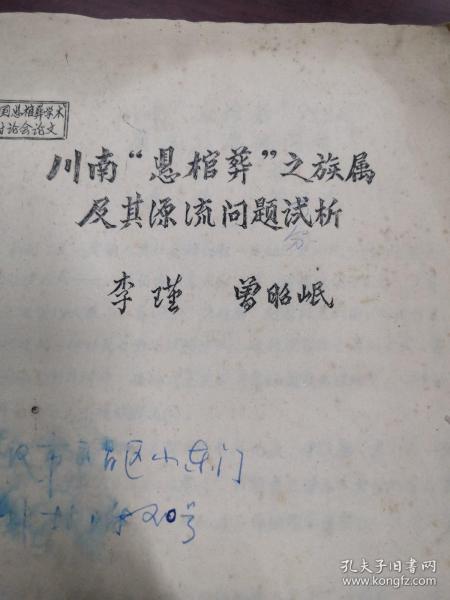 国悬棺葬学术
讨论会论文
川南“悬棺葬”之族属
及其源流问题试析
分
李瑾 曾昭岷
汉市武昌区小东门
村 20号
孔夫子旧书网
www.kongfz.com